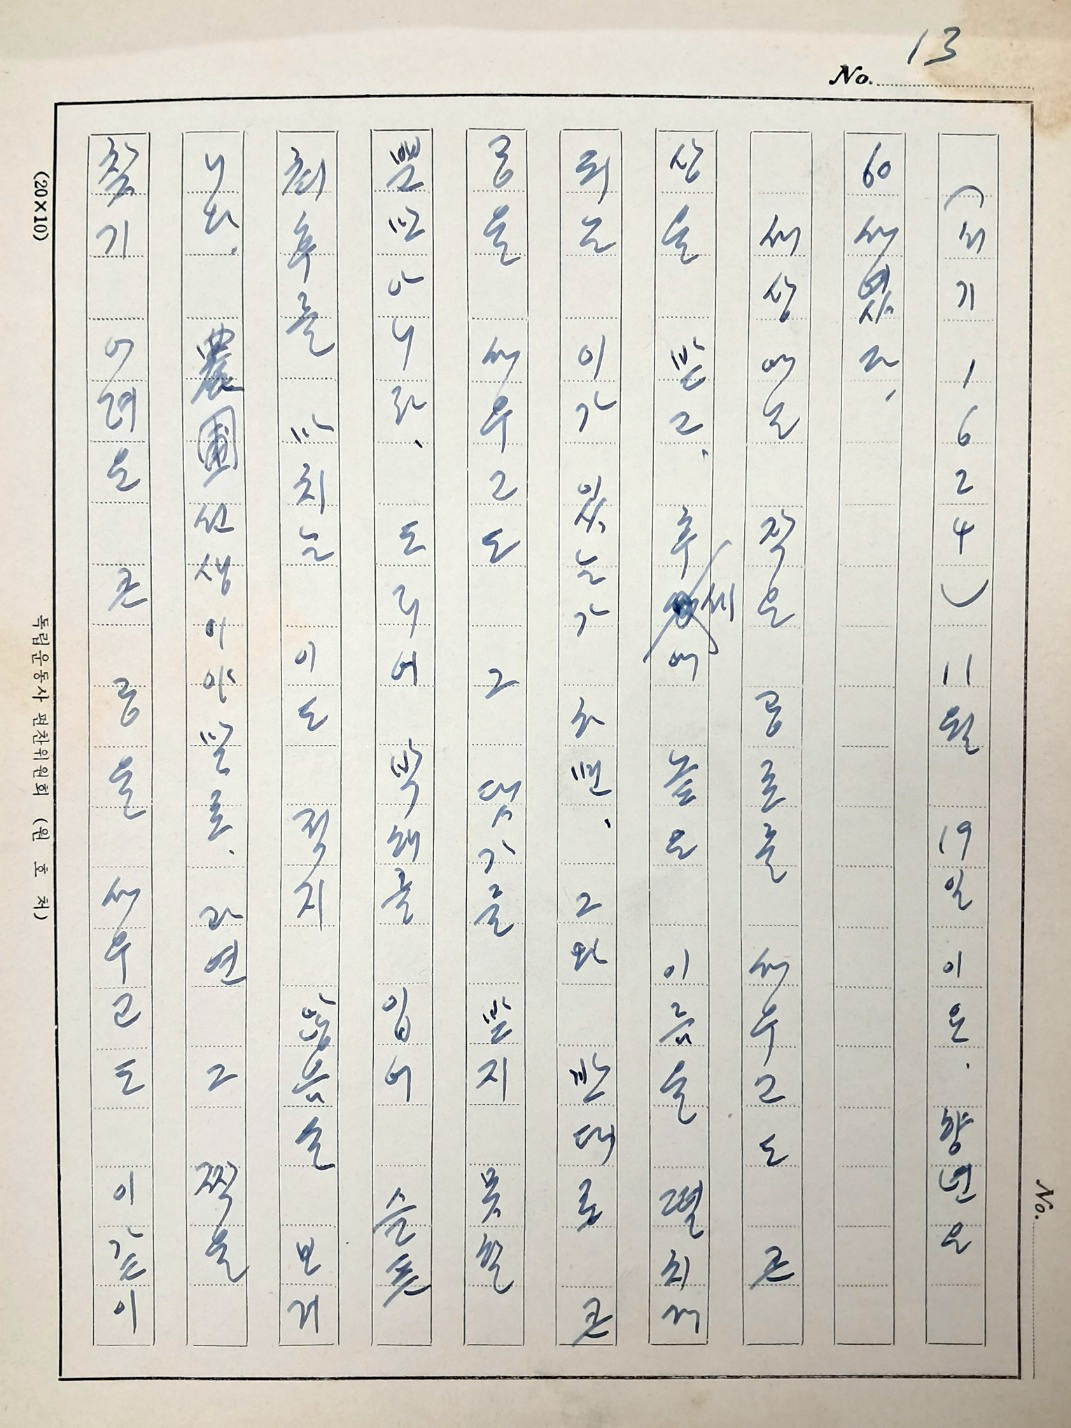 No. 13
(서기 1624) 11월 19일 이요. 향년은
60 세였다.
세상에는 작은 공로를 세우고도 큰
상을 받고, 후세에 높은 이름을 떨치게
되는 이가 있는가 하면, 그와 반대로 큰
공을 세우고도 그 댓가를 받지 못할
뿐만아니라, 도리어 박해를 입어 슬픈
최후를 마치는 이도 적지 않음을 보거
니와. 農圃선생이야말로, 과연 그 짝을
찾기 어려운 큰 공을 세우고도 이같이
(20×10)
독립운동사 편찬위원회 (원호처)
No.